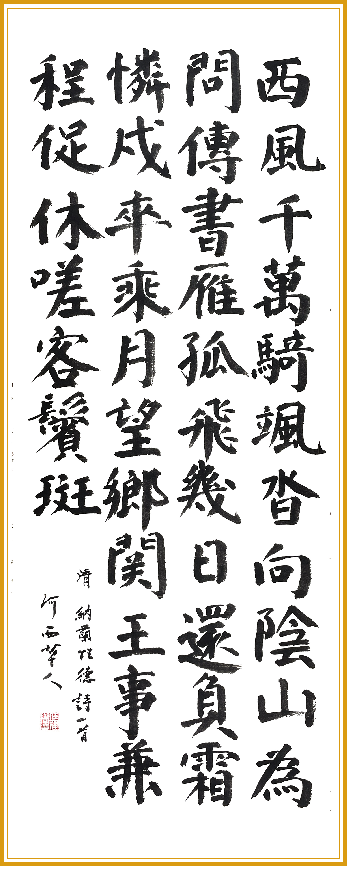 西風千萬騎颯沓向陰山為
問傳書雁孤飛幾日還負霜
憐戍卒乘月望鄉関王事兼
程促休嗟客鬢斑
清 納蘭性德詩一首
西草人